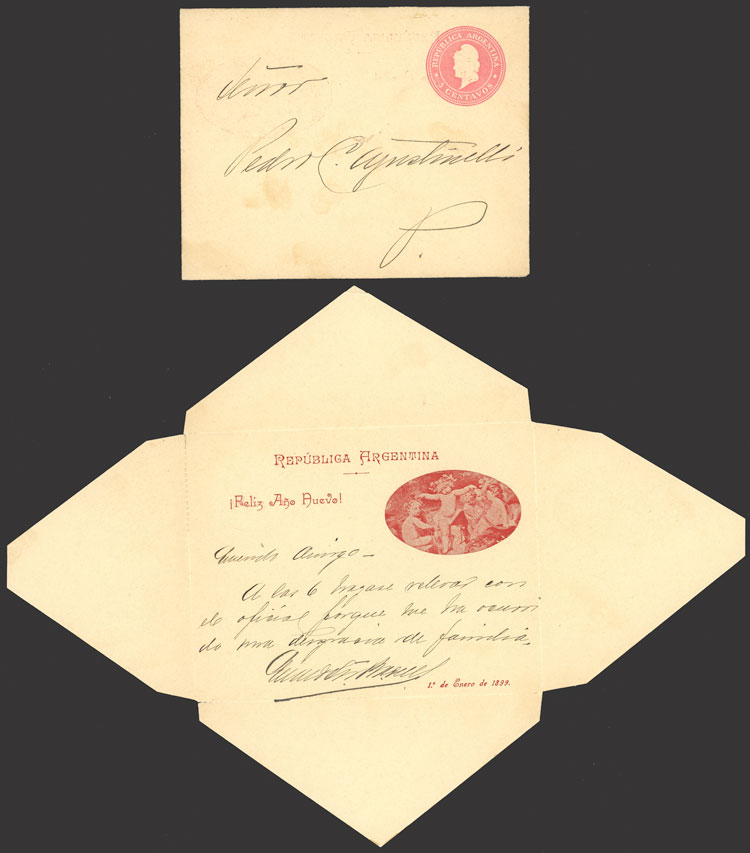 REPÚBLICA ARGENTINA
5 CENTAVOS
Señor
Pedro C. Agustinelli
P.
REPÚBLICA ARGENTINA
¡Feliz Año Nuevo!
Querido Amigo—
A las 6 hagase relevar con
de oficial porque me ha ocurri
do una desgracia de familia.
1º de Enero de 1899.